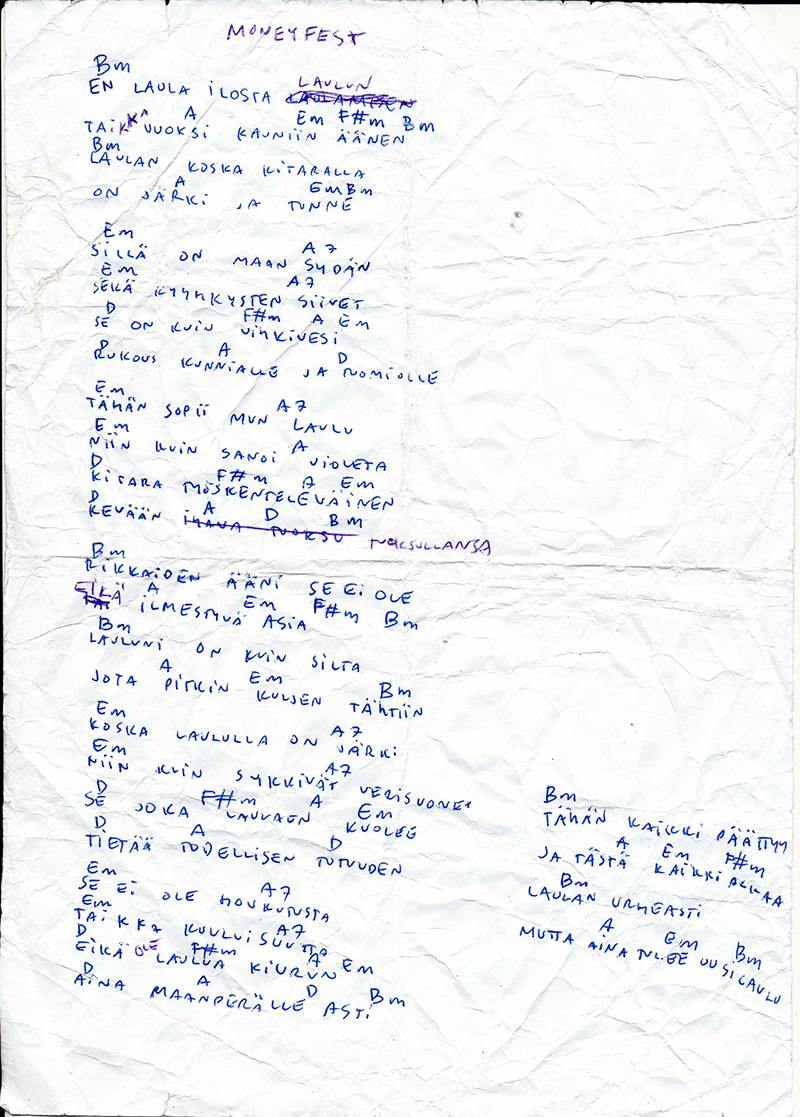 MONEYFEST
Bm
LAULUN
EN LAULA ILOSTA LAULAMISEN
A Em F#m Bm
TAIKKA VUOKSI KAUNIIN ÄÄNEN
Bm
LAULAN KOSKA KITARALLA
A Em Bm
ON JÄRKI JA TUNNE
Em A7
SILLÄ ON MAAN SYDÄN
Em A7
SEKÄ KYYHKYSTEN SIIVET
D F#m A Em
SE ON KUIN VIHKIVESI
D A D
RUKOUS KUNNIALLE JA TUOMIOLLE
Em A7
TÄHÄN SOPII MUN LAULU
Em A
NIIN KUIN SANOI VIOLETA
D F#m A Em
KITARA TYÖSKENTELEVÄINEN
D A D Bm
KEVÄÄN IHANA TUOKSU TUOKSULLANSA
Bm
RIKKAIDEN ÄÄNI SE EI OLE
EIKÄ A Em F#m Bm
TAI ILMESTYVÄ ASIA
Bm
LAULUNI ON KUIN SILTA
A Em Bm
JOTA PITKIN KULJEN TÄHTIIN
Em A7
KOSKA LAULULLA ON JÄRKI
Em A7
NIIN KUIN SYKKIVÄT VERISUONET
D F#m A Em
SE JOKA LAULAEN KUOLEE
D A D
TIETÄÄ TODELLISEN TOTUUDEN
Em A7
SE EI OLE HOUKUTUSTA
Em A7
TAIKKA KUULUISUUTTA
D OLE F#m A Em
EIKÄ LAULUA KIURUN
D A D Bm
AINA MAANPERÄLLE ASTI
Bm
TÄHÄN KAIKKI PÄÄTTYY
A Em F#m
JA TÄSTÄ KAIKKI ALKAA
Bm
LAULAN URHEASTI
A Em Bm
MUTTA AINA TULEE UUSI LAULU